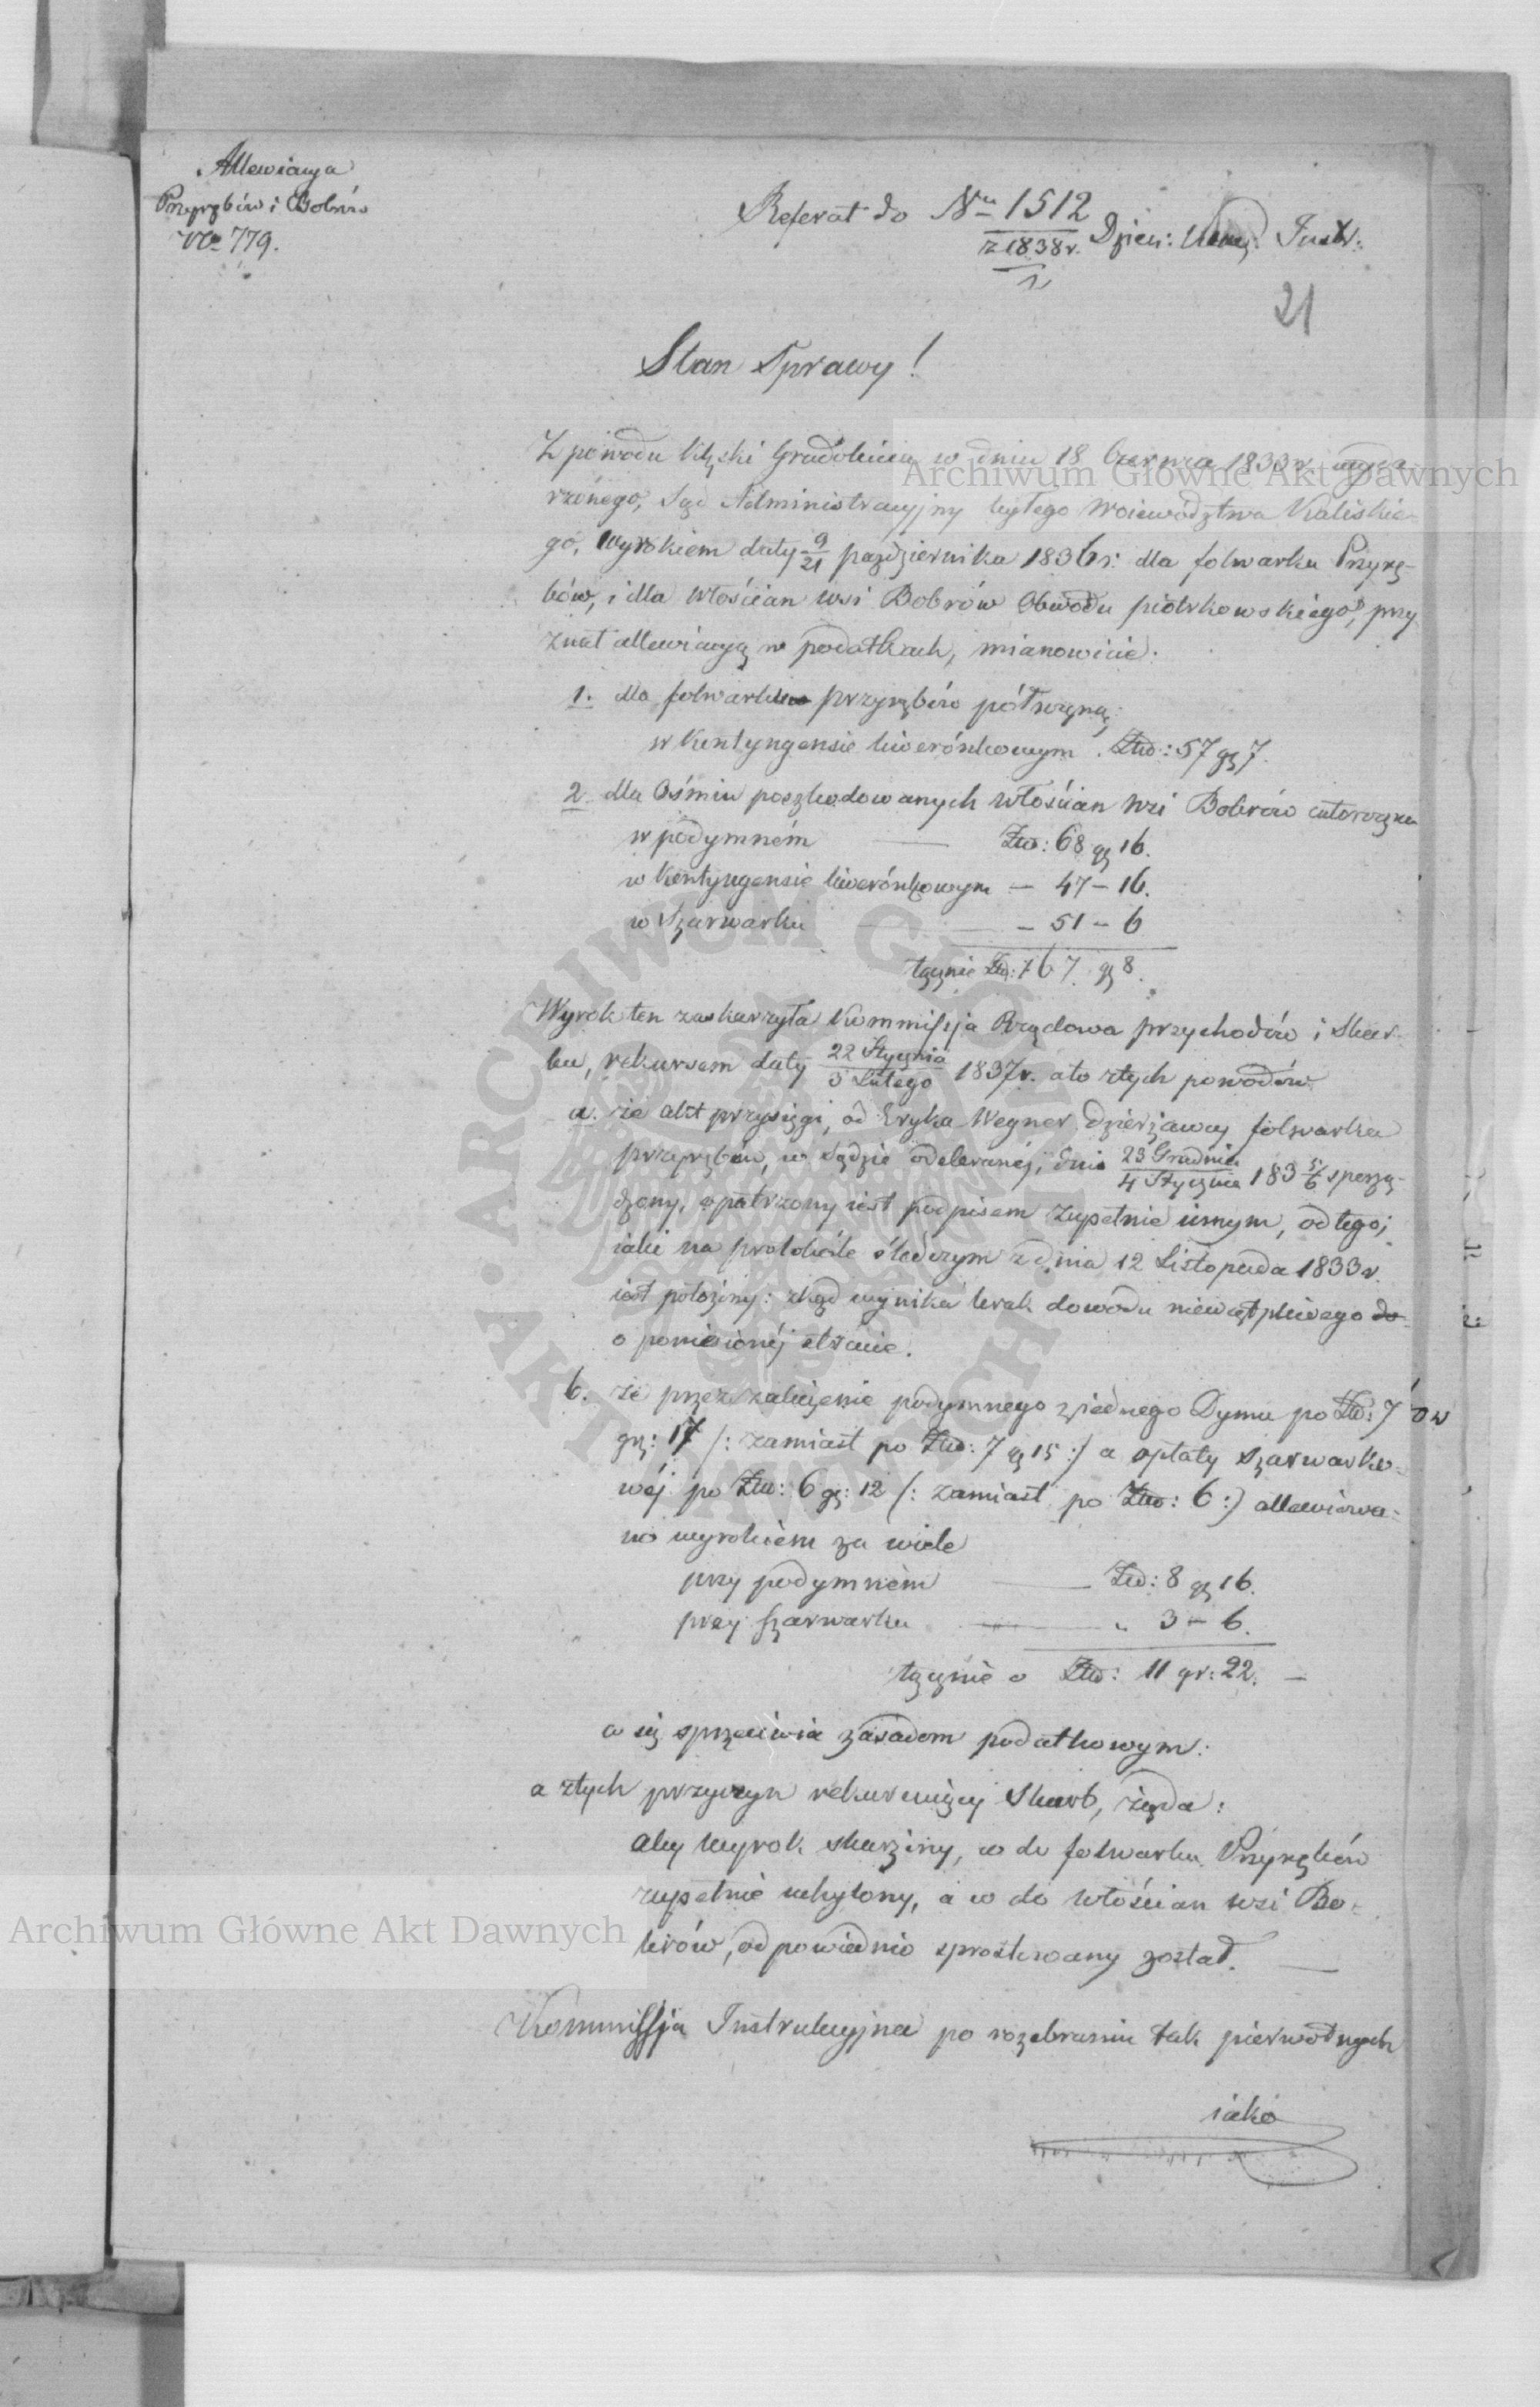 Allewiacya
Przyrębów i Bobrów
No 779.
Referat do Nru 1512
z 1838 r. Dzien: Kom: Instr:
21
Stan Sprawy!
Z powodu klęski Gradobicia w dniu 18 Czerwca 1833 r. wyda-
rzonego, Sąd Administracyjny byłego Woiewództwa Kaliskie-
go, Wyrokiem daty 9/21 października 1836 r: dla folwarku Przyrę-
bów, i dla włościan wsi Bobrów Obwodu piotrkowskiego, przy
znał allewiacyą w podatkach, mianowicie:
1. dla folwarku przyrębów półroczną,
w Kontyngensie liwerónkowym . Złtp: 57 gr 7.
2. dla Ośmiu poszkodowanych włościan wsi Bobrów całoroczną
w podymném — Złtp: 68 gr 16.
w Kontyngensie liwerónkowym — 47 – 16.
w Szarwarku — 51 – 6
łącznie Złtp: 167 gr 8.
Wyrok ten zaskarżyła Kommissja Rządowa przychodów i Skar-
bu, rekursem daty 22 Stycznia/3 Lutego 1837 r. a to z tych powodów
a. że akt przysięgi, od Eryka Wegner dzierżawcy folwarku
przyrębów, w Sądzie odebranéj, dnia 23 Grudnia/4 Stycznia 183 5/6 sporzą-
dzony, opatrzony iest podpisem zupełnie innym, od tego,
iaki na protokóle śledczym z dnia 12 Listopada 1833 r.
iest położony: zkąd wynika brak dowodu niewątpliwego do
o poniesionéj stracie.
b. że przez zaliczenie podymnego z iednego Dymu po Złtp: 7
gr: 17 /: zamiast po Złtp: 7 gr 15 :/ a opłaty szarwarko-
wéj po Złtp: 6 gr: 12 /: zamiast po Złtp: 6 :/ allewiowa-
no wyrokiem za wiele
przy podymném — Złtp: 8 gr 16.
przy szarwarku — „ 3 – 6.
łącznie o Złtp: 11 gr: 22. —
co się sprzeciwia zasadom podatkowym:
a z tych przyczyn rekuruiący Skarb, żąda:
aby wyrok skarżony, co do folwarku Przyrębów
zupełnie uchylony, a co do włościan wsi Bo-
brów, odpowiednio sprostowany został. —
Kommissja Instrukcyjna po rozebraniu tak pierwotnych
iako
Archiwum Główne Akt Dawnych
Archiwum Główne Akt Dawnych
ARCHIWUM GŁÓWNE AKT DAWNYCH